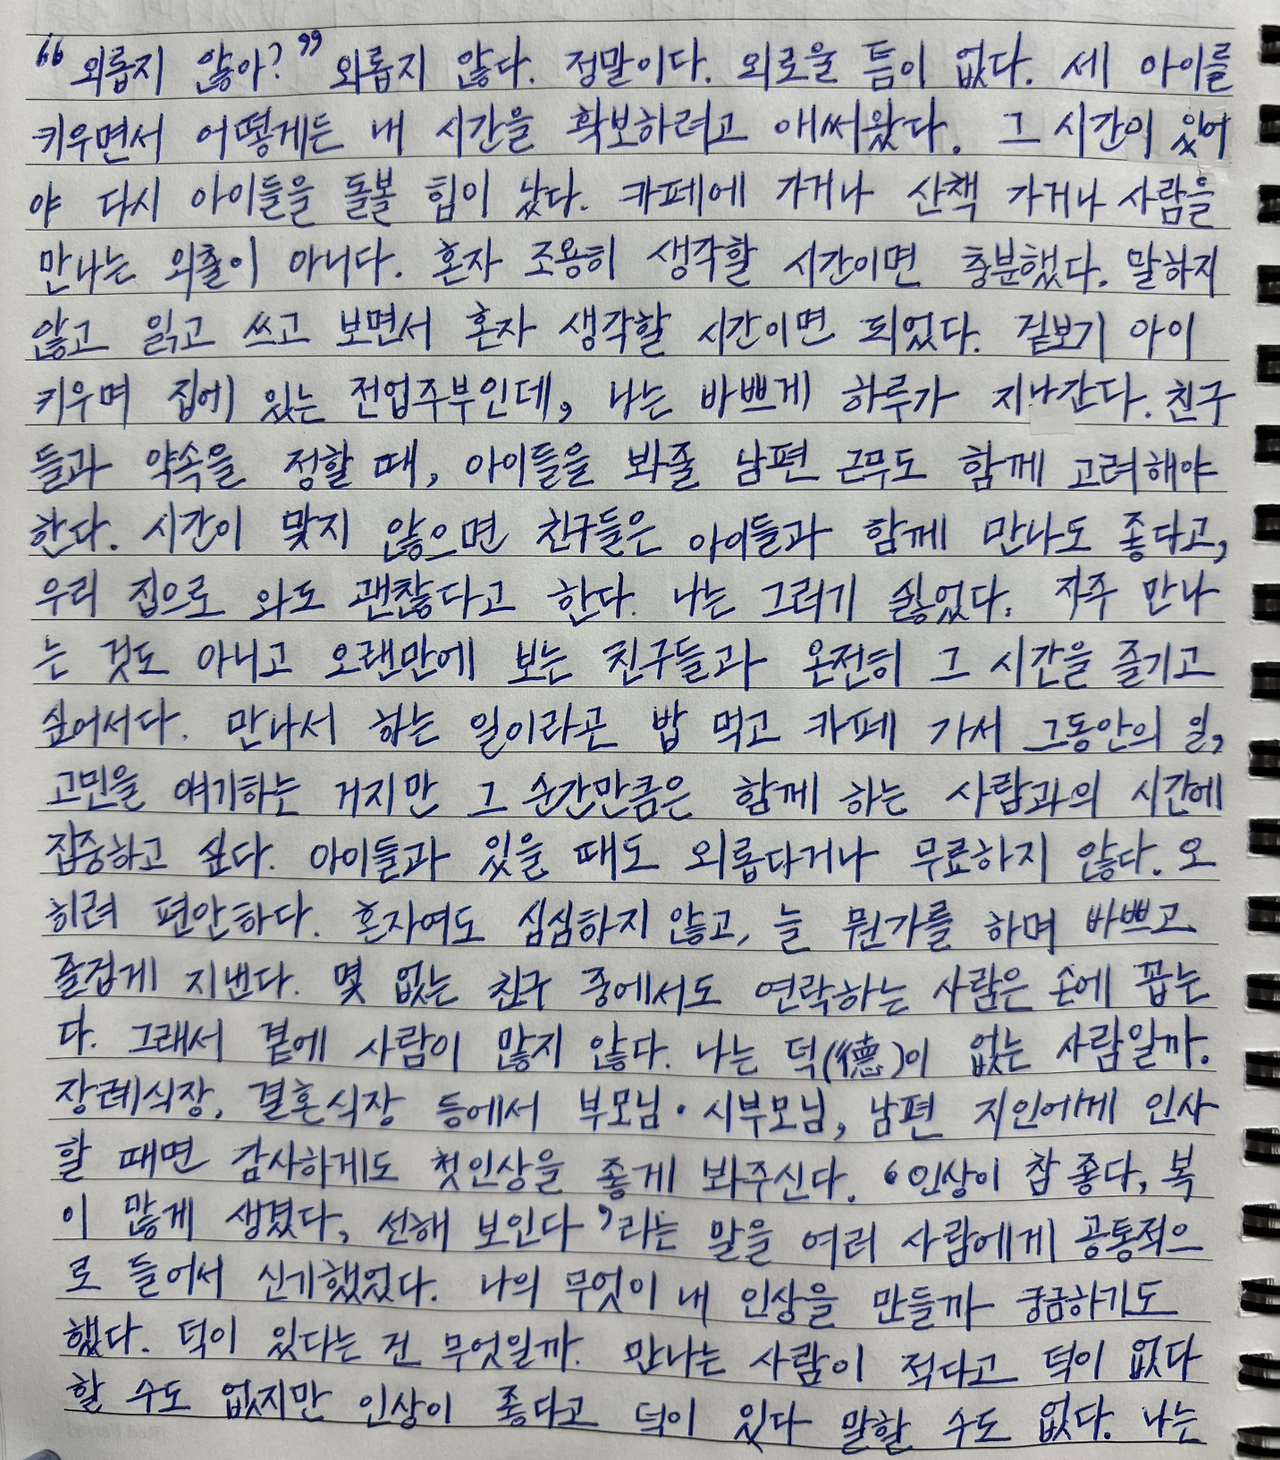 “외롭지 않아?” 외롭지 않다. 정말이다. 외로울 틈이 없다. 세 아이를
키우면서 어떻게든 내 시간을 확보하려고 애써왔다. 그 시간이 있어
야 다시 아이들을 돌볼 힘이 났다. 카페에 가거나 산책 가거나 사람을
만나는 외출이 아니다. 혼자 조용히 생각할 시간이면 충분했다. 말하지
않고 읽고 쓰고 보면서 혼자 생각할 시간이면 되었다. 겉보기 아이
키우며 집에 있는 전업주부인데, 나는 바쁘게 하루가 지나간다. 친구
들과 약속을 정할 때, 아이들을 봐줄 남편 근무도 함께 고려해야
한다. 시간이 맞지 않으면 친구들은 아이들과 함께 만나도 좋다고,
우리 집으로 와도 괜찮다고 한다. 나는 그러기 싫었다. 자주 만나
는 것도 아니고 오랜만에 보는 친구들과 온전히 그 시간을 즐기고
싶어서다. 만나서 하는 일이라곤 밥 먹고 카페 가서 그동안의 일,
고민을 얘기하는 거지만 그 순간만큼은 함께 하는 사람과의 시간에
집중하고 싶다. 아이들과 있을 때도 외롭다거나 무료하지 않다. 오
히려 편안하다. 혼자여도 심심하지 않고, 늘 뭔가를 하며 바쁘고
즐겁게 지낸다. 몇 없는 친구 중에서도 연락하는 사람은 손에 꼽는
다. 그래서 곁에 사람이 많지 않다. 나는 덕(德)이 없는 사람일까.
장례식장, 결혼식장 등에서 부모님·시부모님, 남편 지인에게 인사
할 때면 감사하게도 첫인상을 좋게 봐주신다. ‘인상이 참 좋다, 복
이 많게 생겼다, 선해 보인다’라는 말을 여러 사람에게 공통적으
로 들어서 신기했었다. 나의 무엇이 내 인상을 만들까 궁금하기도
했다. 덕이 있다는 건 무엇일까. 만나는 사람이 적다고 덕이 없다
할 수도 없지만 인상이 좋다고 덕이 있다 말할 수도 없다. 나는